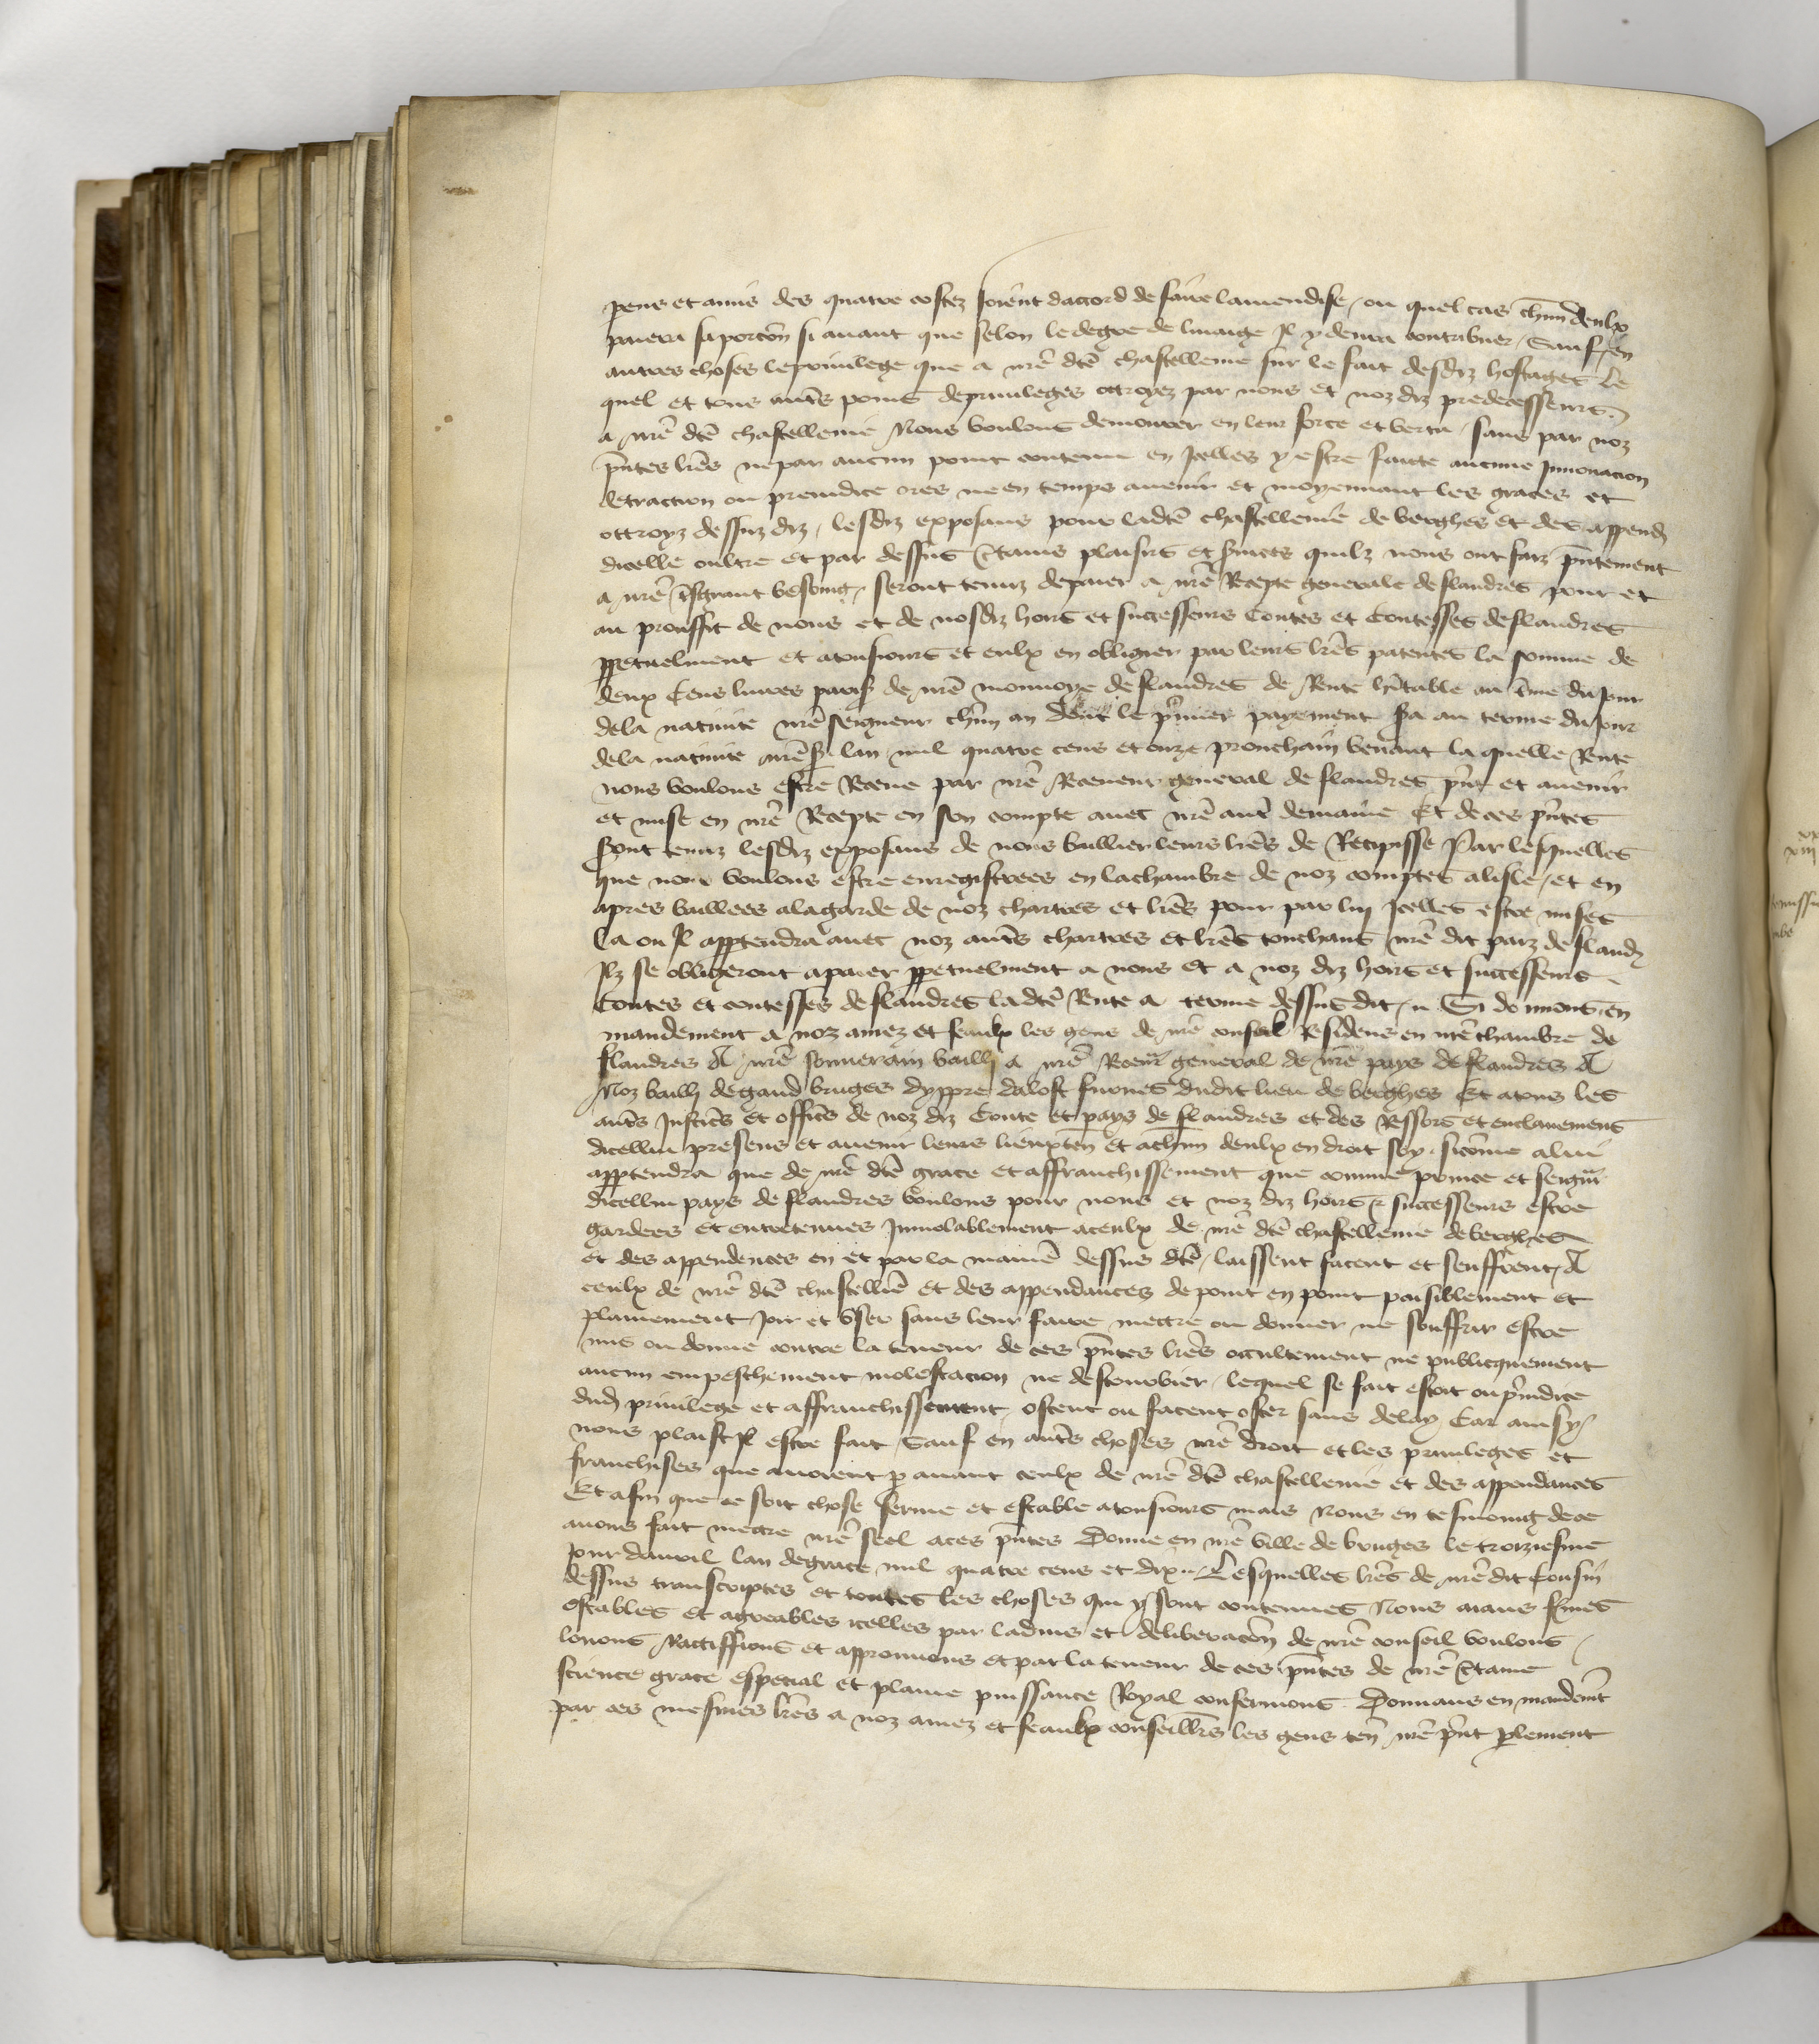 pens et amis des quatre costez soient daccord de faire lamendise / ou quel cas chun deulx
paiera sa porcon si auant que selon le degre de linaige Il y deura contribuer / Sauf / en
autres choses le preuilege que a nre dte chastellenie sur le fait desdiz hostages Le
quel et tous auts poins de priuileges ottroyez par nous et noz diz predecesseurs
a nre dte chastellenie Nous voulons demourer en leur force et vertu / sans par noz
pntes lres ne par aucun point contenu en Icelles y estre faicte aucune Innouacion
detraction ou preiudice ores ne en temps auenir et moyennant les graces et
ottroyz dessuz diz / lesdiz exposans pour ladte chastellenie de berghes et des append
dicelle oultre et par dessus ctains plaisirs et suices quilz nous ont faiz pntement
a nre tsgrant besoing / seront tenuz de paier a nre Recepte generale de flandres pour et
au prouffit de nous et de nosdiz hoirs et successeurs Contes et Contesses de flandres
ppetuelment et a tousiours et eulx en obligier par leurs lres patentes la somme de
deux Cens liures pars de nre monnoye de flandres de Rente hitable au tme du Jour
dela natiuite nre seigneur chun an dont le pmier payement sa au terme du Jour
dela natiuite nre s lan mil quatre cens et onze prouchain venant la quelle Rente
nous voulons estre Receue par nre Receueur general de flandres pnt et auenir
et mise en nre Recepte en son compte auec nre aut demaine Et de ces pntes
sont tenuz lesdiz exposans de nous baillier leurs lres de Recipisse Par lesquelles
que nous voulons estre enregistrees en la chambre de noz comptes a lisle / et en
apres baillees a la garde de noz chartres et lres pour par luy Icelles estre mises
la ou Il apptendra auec noz auts chartres et lres touchans nre dit pais de fland
Ilz se obligeront a paier ppetuelment a nous et a noz diz hoirs et successeurs
Contes et contesses de flandres ladte Rente a terme dessusdit / Si donnons en
mandement a noz amez et feaulx les gens de nre conseil Residens en nre chambre de
flandres A nre souuerain bailli a nre Receur general de nre pays de flandres A
Noz bailliz de gand bruges dyppre dalost furnes dudit lieu de berghes Et a tous les
auts Justices et offices de noz diz Conte et pays de flandres et des Ressors et enclauemens
dicellui presens et auenir leurs lieuxten et a chun deulx en droit soy / si come a lui
apptendra que de nre dte grace et affranchissement que comme prince et seignr
dicellui pays de flandres voulons pour nous et noz diz hoirs et successeurs estre
gardees et entretenues Inuiolablement a ceulx de nre dte chastellenie de berghes
et des appendences en et par la maniere dessus dte / laissent facent et seuffrent / A
ceulx de nre dte chastellie et des appendances de point en point paisiblement et
plainement Joir et vser sans leur faire mettre ou donner ne souffrir estre
mis ou donne contre la teneur de ces pntes lres occultement ne publicquement
aucun empeschement molestacion ne destourbier / lequel se fait estoit ou piudice
dud priuilege et affranchissement / ostent ou facent oster sans delay Car ainsy
nous plaist Il estre fait Sauf en auts choses nre droit et les priuileges et
franchises que auoient p auant ceulx de nre dte chastellenie et des appendances
Et afin que ce soit chose ferme et estable a tousiours mais Nous en tesmoing de ce
auons fait mettre nre seel a ces pntes Donne en nre ville de bruges le troiziesme
Jour dauril lan de grace mil quatre cens et dix / Lesquelles lres de nre dit Cousin
dessus transcriptes et toutes les choses qui y sont contenues Nous aians fermes
estables et agreables icelles par laduis et deliberacon de nre conseil voulons
louons Rattiffions et approuuons et par la teneur de ces pntes de nre ctaine
science grace especial et plaine puissance Royal confermons Donnans en mandemt
par ces mesmes lres a noz amez et feaulx conseillrs les gens ten nre pnt plement